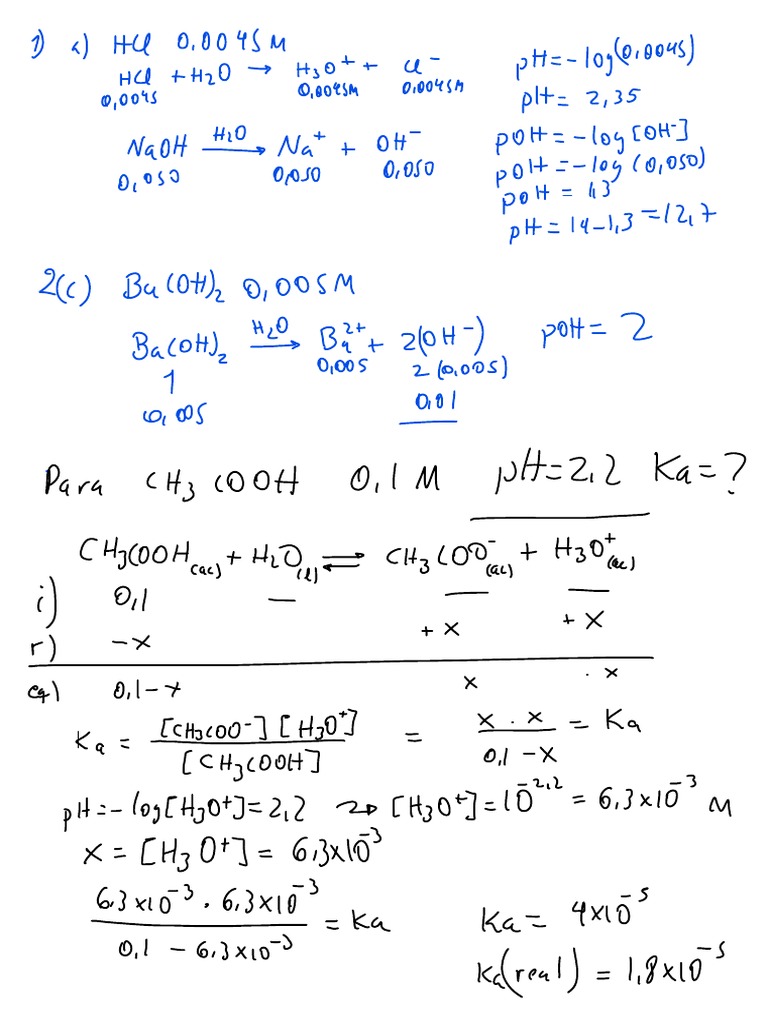 1) a) HCl 0,0045M
HCl + H2O → H3O+ + Cl-
0,0045 0,0045M 0,0045M
pH = -log(0,0045)
pH = 2,35
NaOH H2O→ Na+ + OH-
0,050 0,050 0,050
pOH = -log[OH-]
pOH = -log(0,050)
pOH = 1,3
pH = 14-1,3 = 12,7
2(c) Ba(OH)2 0,005M
Ba(OH)2 H2O→ Ba2+ + 2(OH-) pOH = 2
0,005 2(0,005)
↑
0,005 0,01
Para CH3COOH 0,1M pH=2,2 Ka=?
CH3COOH(ac) + H2O(l) ⇌ CH3COO-(ac) + H3O+(ac)
i) 0,1 — — —
r) -x +x +x
eq) 0,1-x x x
Ka = [CH3COO-][H3O+] / [CH3COOH] = x · x / 0,1-x = Ka
pH = -log[H3O+] = 2,2 ⇝ [H3O+] = 10-2,2 = 6,3x10-3 M
x = [H3O+] = 6,3x10-3
6,3x10-3 · 6,3x10-3 / 0,1 - 6,3x10-3 = Ka
Ka = 4x10-5
Ka(real) = 1,8x10-5